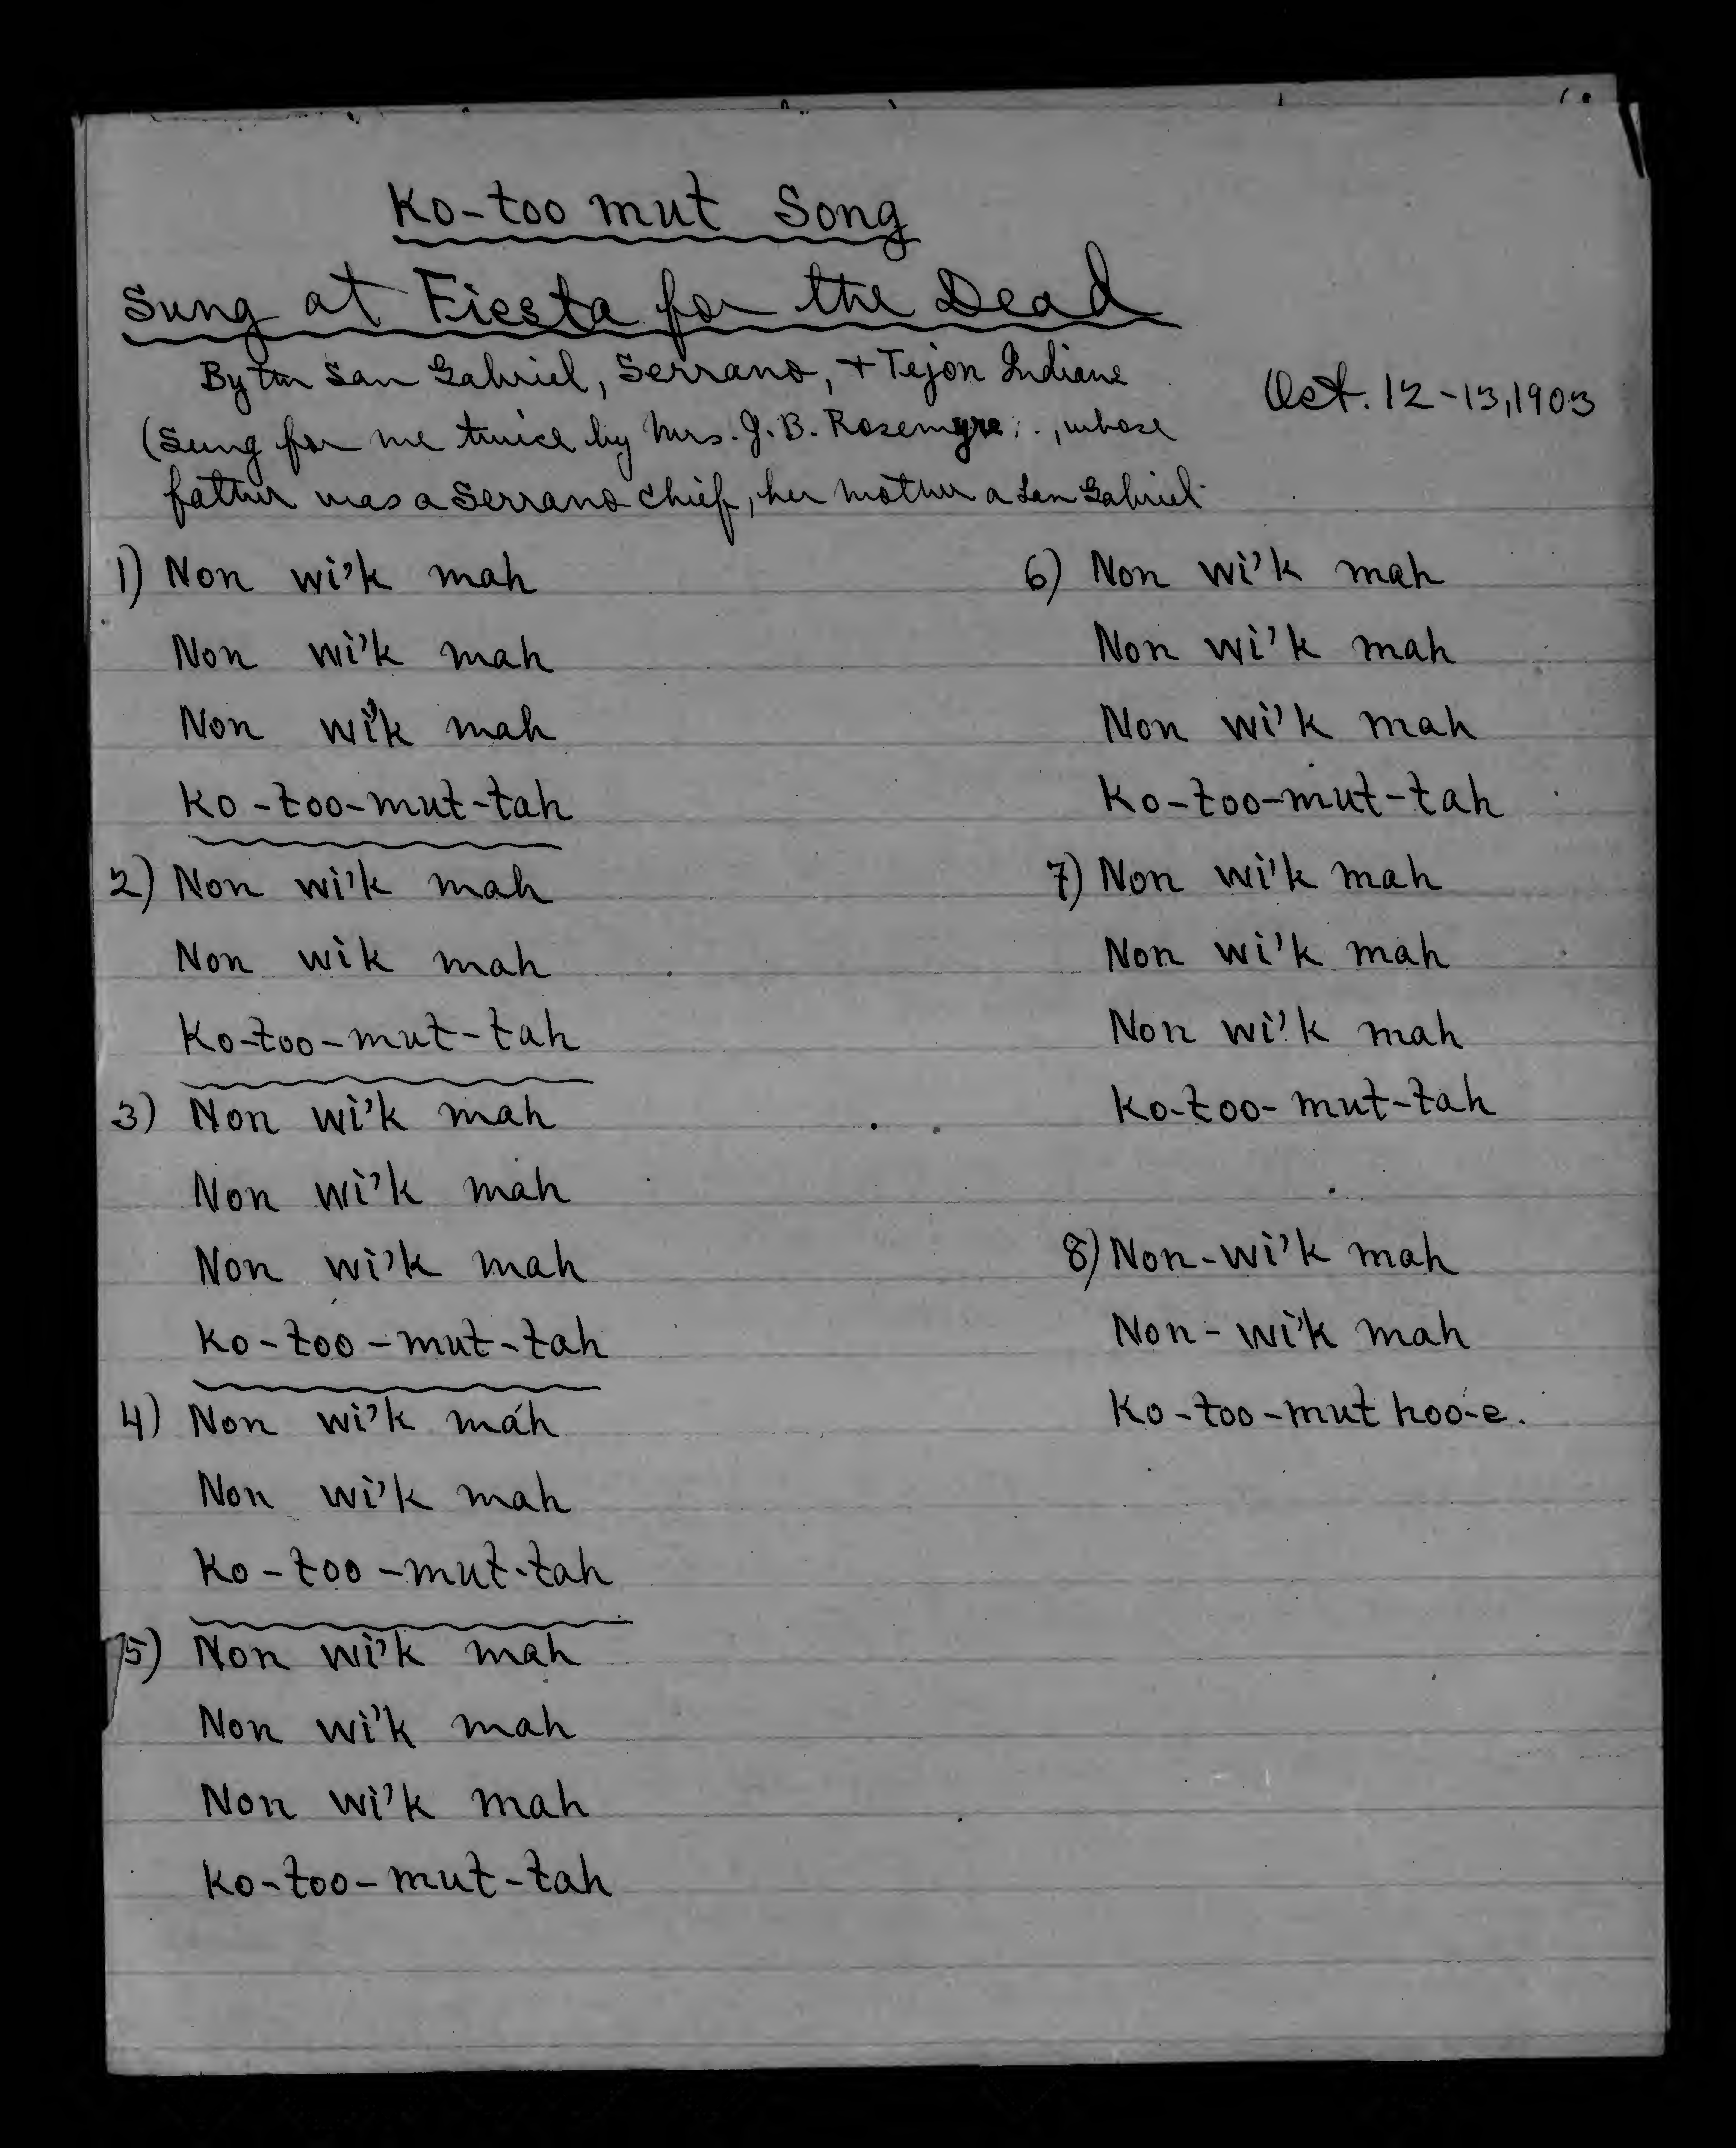 Ko-too mut Song
Sung at Fiesta for the Dead
By the San Gabriel, Serrano, + Tejon Indians
Oct. 12-13, 1903
(Sung for me twice by Mrs. J. B. Rosemyre, whose
father was a Serrano chief, her mother a San Gabriel
1) Non wi'k mah
Non wi'k mah
Non wi'k mah
Ko-too-mut-tah
2) Non wi'k mah
Non wik mah
Ko-too-mut-tah
3) Non wi'k mah
Non wi'k mah
Non wi'k mah
Ko-too-mut-tah
4) Non wi'k mah
Non wi'k mah
Ko-too-mut-tah
5) Non wi'k mah
Non wi'k mah
Non wi'k mah
Ko-too-mut-tah
6) Non wi'k mah
Non wi'k mah
Non wi'k mah
Ko-too-mut-tah
7) Non wi'k mah
Non wi'k mah
Non wi'k mah
Ko-too-mut-tah
8) Non-wi'k mah
Non-wi'k mah
Ko-too-mut hoo-e.